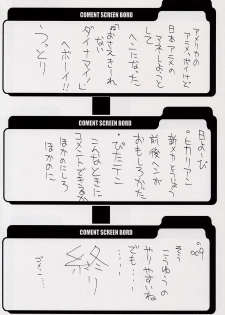 COMENT SCREEN BORD
アメリカの
アニメっぽいけど
日本アニメの
マネしようと
して
ヘンになった
「おさえきれ
ない
ダイナマイツ」
ヘボーイ!!
うっとり
COMENT SCREEN BORD
日よーび
・ヒカリアン
新メカとうじょう
前後へンが
おもしろかった
・ぴたテン
こんなときに
コメントできるか
ほかのにしろ
ほかのに
COMENT SCREEN BORD
そう
こーゆうの
やりやすいね
でも‥‥
‥‥‥
終り
ゴメン…